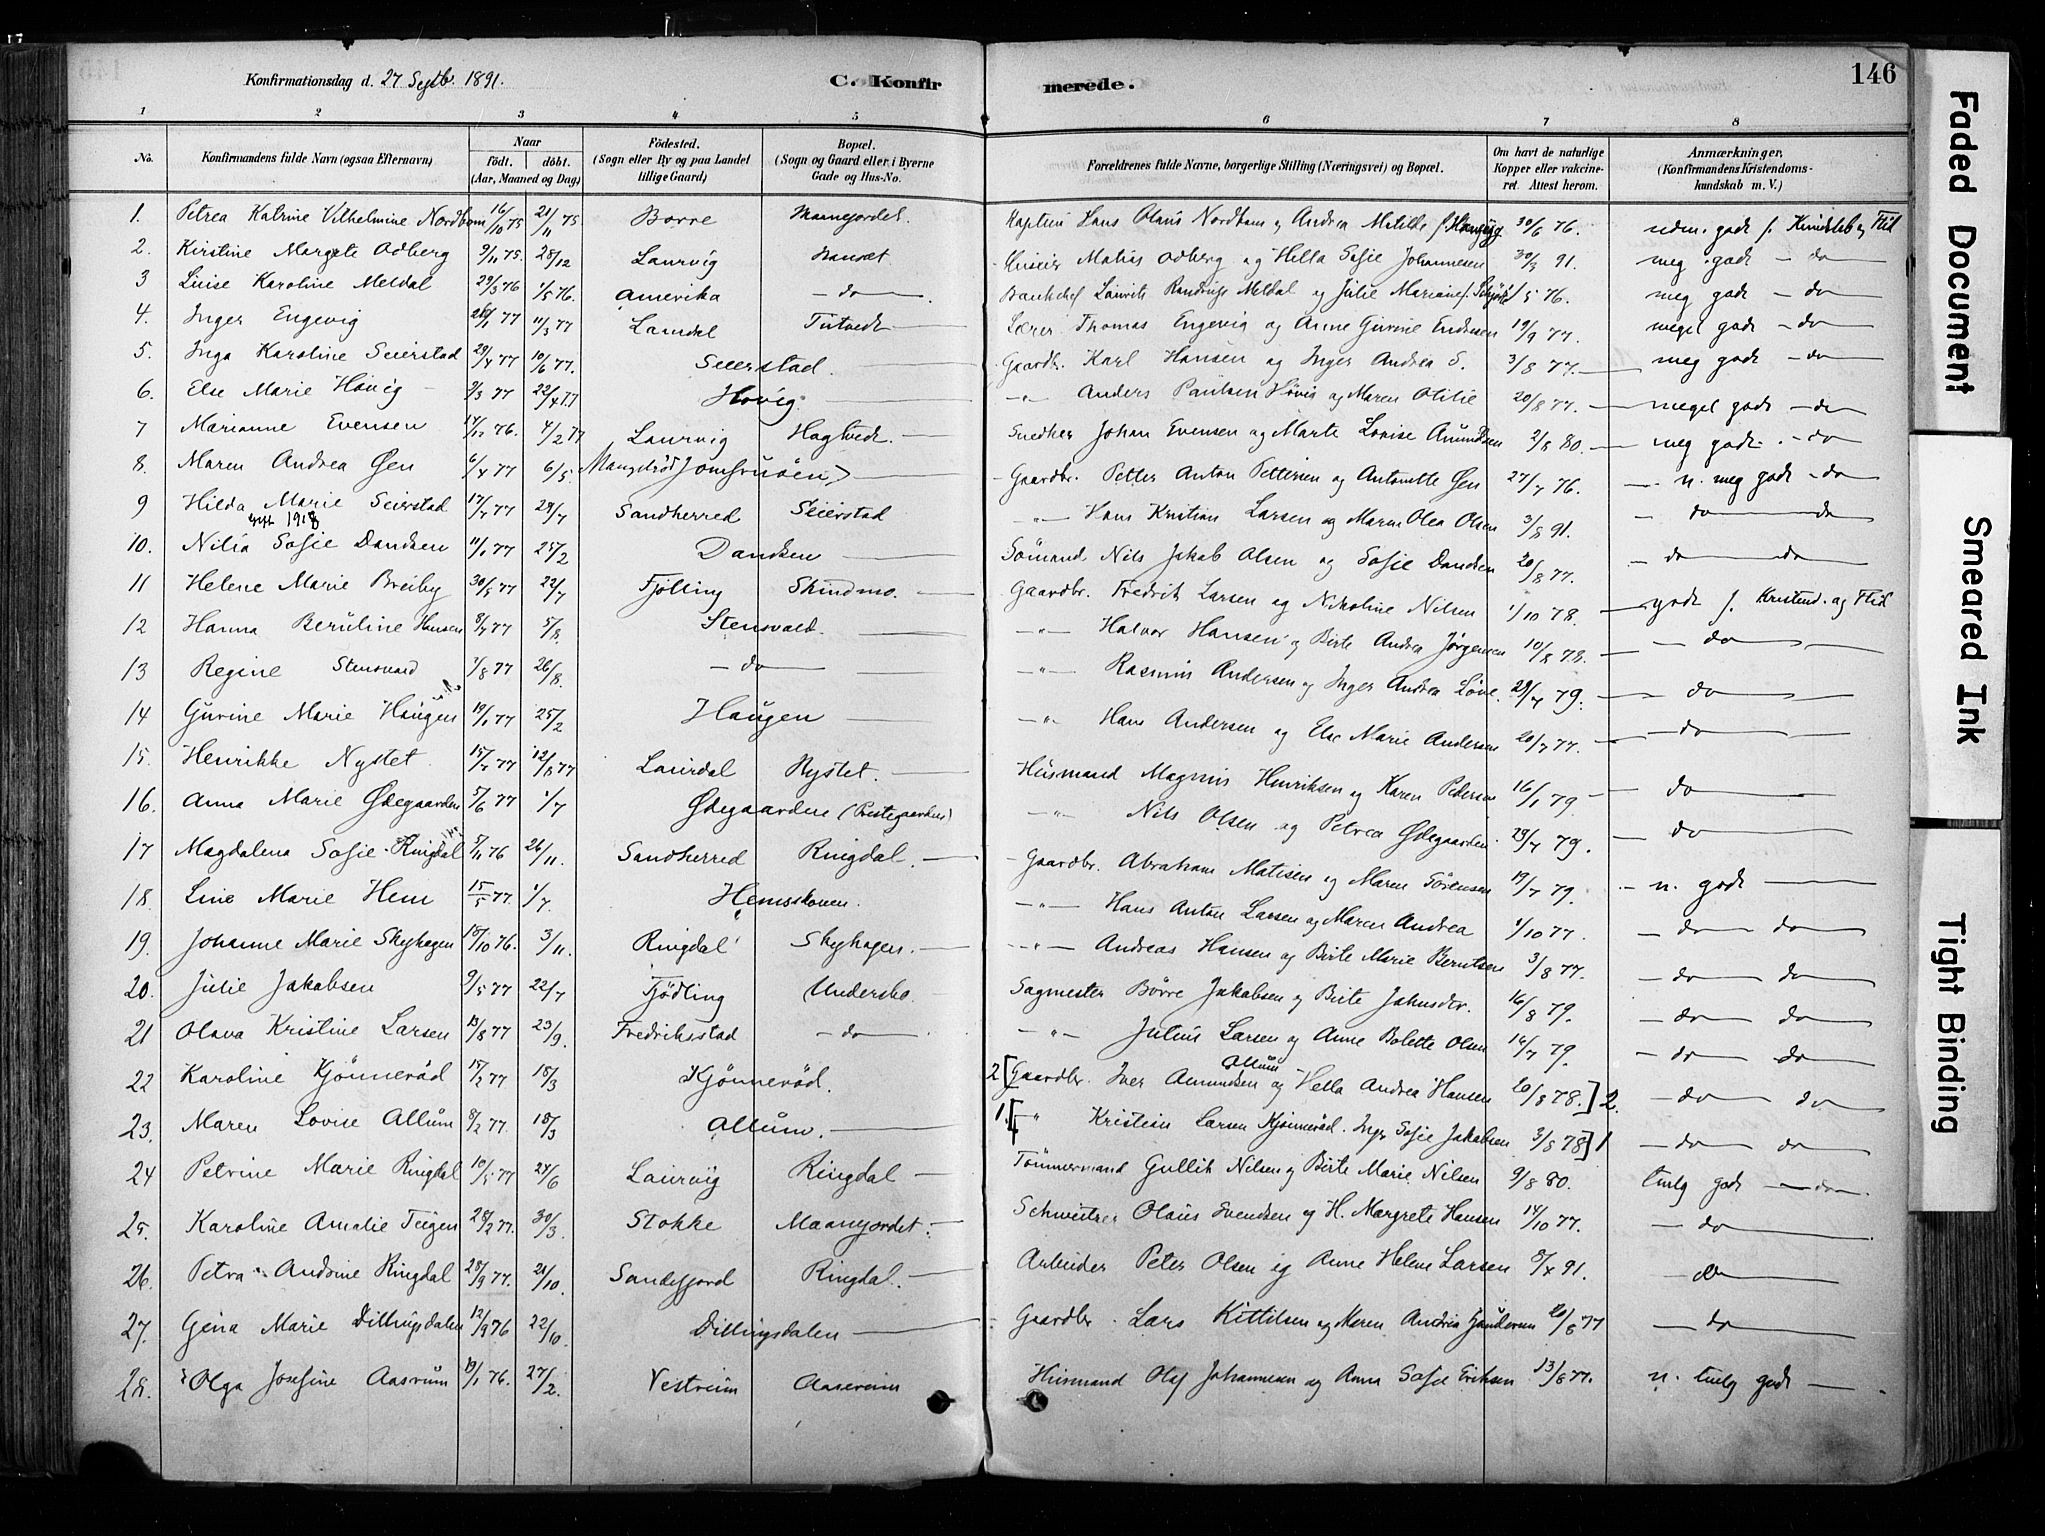 Konfirmationsdag d. 27 Septb. 1891.
C. Konfir
merede.
146
1 2 3 4 5 6 7 8
No. Konfirmandens fulde Navn (ogsaa Efternavn) Naar født. døbt. (Aar, Maaned og Dag) Födested. (Sogn eller By og paa Landet tillige Gaard) Bopæl. (Sogn og Gaard eller i Byerne Gade og Hus-No.
Forældrenes fulde Navne, borgerlige Stilling (Næringsvei) og Bopæl. Om havt de naturlige Kopper eller vakcineret. Attest herom. Anmærkninger. (Konfirmandens Kristendomskundskab m. V.)
1. Petrea Katrine Vilhelmine Nordbom 16/10 75 21/11 75 Borre Maanejordet. Kaptein Hans Olaus Nordbom og Andrea Matilde 30/6 76. udm. godt f. Kundskab og Flid
2. Kirstine Margete Odberg 9/11 75. 25/12 Laurvig Matias Odberg og Hella Sofie Johannesen 30/3 91. meg. godt - do
3 Luise Karoline Meldal 29/3 76 1/5 76. Amerika - do Meldal og Julie Mariane f. 1/5 76. meg godt - do
4. Inger Engevig 26/1 77 11/3 77 Lardal Tutvedt Lærer Thomas Engevig og Anne Gurine Endresen 19/9 77. meget godt - do
5. Inga Karoline Seierstad 29/4 77 10/6 77. Seierstad. Gaardbr. Karl Hansen og Inger Andrea S. 3/8 77. meg godt - do
6. Else Marie Hövig 2/3 77 22/4 77 Hövig. -"- Anders Paulsen Hövig og Maren Otilie 20/8 77. meget godt - do
7 Marianne Evensen 17/12 76. 4/2 77 Laurvig Hagtvedt. Snedker Johan Evensen og Marte Lovise Amundsen 2/8 80. meg godt. - do
8. Maren Andrea Øen 6/4 77 6/5. Jomfruöen Gaardbr. Petter Anton Pettersen og Antonette Øen 27/7 76. n. meg godt - do
9 Hilda Marie Seierstad 17/7 77 29/7 Sandherred Seierstad -"- Hans Kristian Larsen og Maren Olea Olsen 3/8 91. - do do
gift 1918
10. Nilia Sofie Dandsen 11/1 77 25/2 Dandsen Sömand Nils Jakob Olsen og Sofie Dandsen 20/8 77. - do do
11 Helene Marie Breiby 30/5 77 22/7 Fjölling Skindmo. Gaardbr. Fredrik Larsen og Nikoline Nilsen 1/10 78. godt f. Kristend. og Flid
12 Hanna Beruline Hansen 8/7 77 5/8. Stensvold. -"- Halvor Hansen og Birte Andrea Jørgensen 10/8 78. - do
13 Regine Stensvold 7/8 77 26/8. - do -"- Rasmus Andersen og Inger Andrea 29/7 79. - do
14 Gurine Marie Haugen 19/1 77 25/2 Haugen -"- Hans Andersen og Else Marie Andersen 20/7 77. - do
15. Henrikke Nystet 15/7 77 12/8 77 Laurdal Nystet. Husmand Magnus Henriksen og Karen Pedersen 16/1 79. do
16. Anna Marie Ødegaarden 5/6 77 1/7 Ødegaarden (Prestegaarden) -"- Nils Olsen og Petrea Ødegaarden 29/7 79. - do
17 Magdalena Sofie Ringdal 5/11 76 26/11. Sandherred Ringdal. Gaardbr. Abraham Matisen og Maren Sörensen 19/7 79. - n. godt
18. Line Marie Hem 15/5 77 1/7. Hemsskoven. -"- Hans Anton Larsen og Maren Andrea 1/10 77. - do do
19. Johanne Marie Skyhagen 18/10 76. 3/11. Ringdal Skyhagen. -"- Andreas Hansen og Birte Marie Berntsen 3/8 77. - do do
20. Julie Jakobsen 9/5 77 22/7 Fjödling Undersbo. Sagmester Börre Jakobsen og Birte Jahnsdtr. 16/8 79. - do do
21 Olava Kristine Larsen 13/8 77 23/9. Fredriksstad - do -"- Julius Larsen og Anne Bolette Olsen 16/7 79. - do do
22 Karoline Kjönneröd 15/2 77 18/3 Kjönneröd. 2 [Gaardbr. Iver Amundsen Allum og Hella Andrea Hansen 20/8 78.] 2. - do do
23. Maren Lovise Allum 8/2 77. 18/3 Allum. 1. [-"- Kristian Larsen Kjönneröd. Inger Sofie Jakobsen 3/8 78] 1 - do do
24 Petrine Marie Ringdal 10/5 77 24/6 Laurvig Ringdal Tömmermand Gullik Nilsen og Birte Marie Nilsen 9/8 80. temlg godt - do
25. Karoline Amalie Teigen 28/2 77. 30/3. Stokke Maanejordet. Schweitser Olaus Svendsen og H. Margrete Hansen 14/10 77. - do
26. Petra Andrine Ringdal 28/9 77. 21/10. Sandefjord Ringdal. Arbeider Peter Olsen og Anne Helene Larsen 8/4 91. - do
27. Gina Marie Dillingsdalen 12/9 76 22/10. Dillingsdalen Gaardbr. Lars Kittilsen og Maren Andrea Gundersen 20/8 77 - do
28. Olga Josefine Aasrum 19/1 76. 27/2. Vestreim Aasereim Husmand Olaf Johannesen og Anne Sofie Eriksen 13/8 77. n. temlg godt
Faded Document
Smeared Ink
Tight Binding